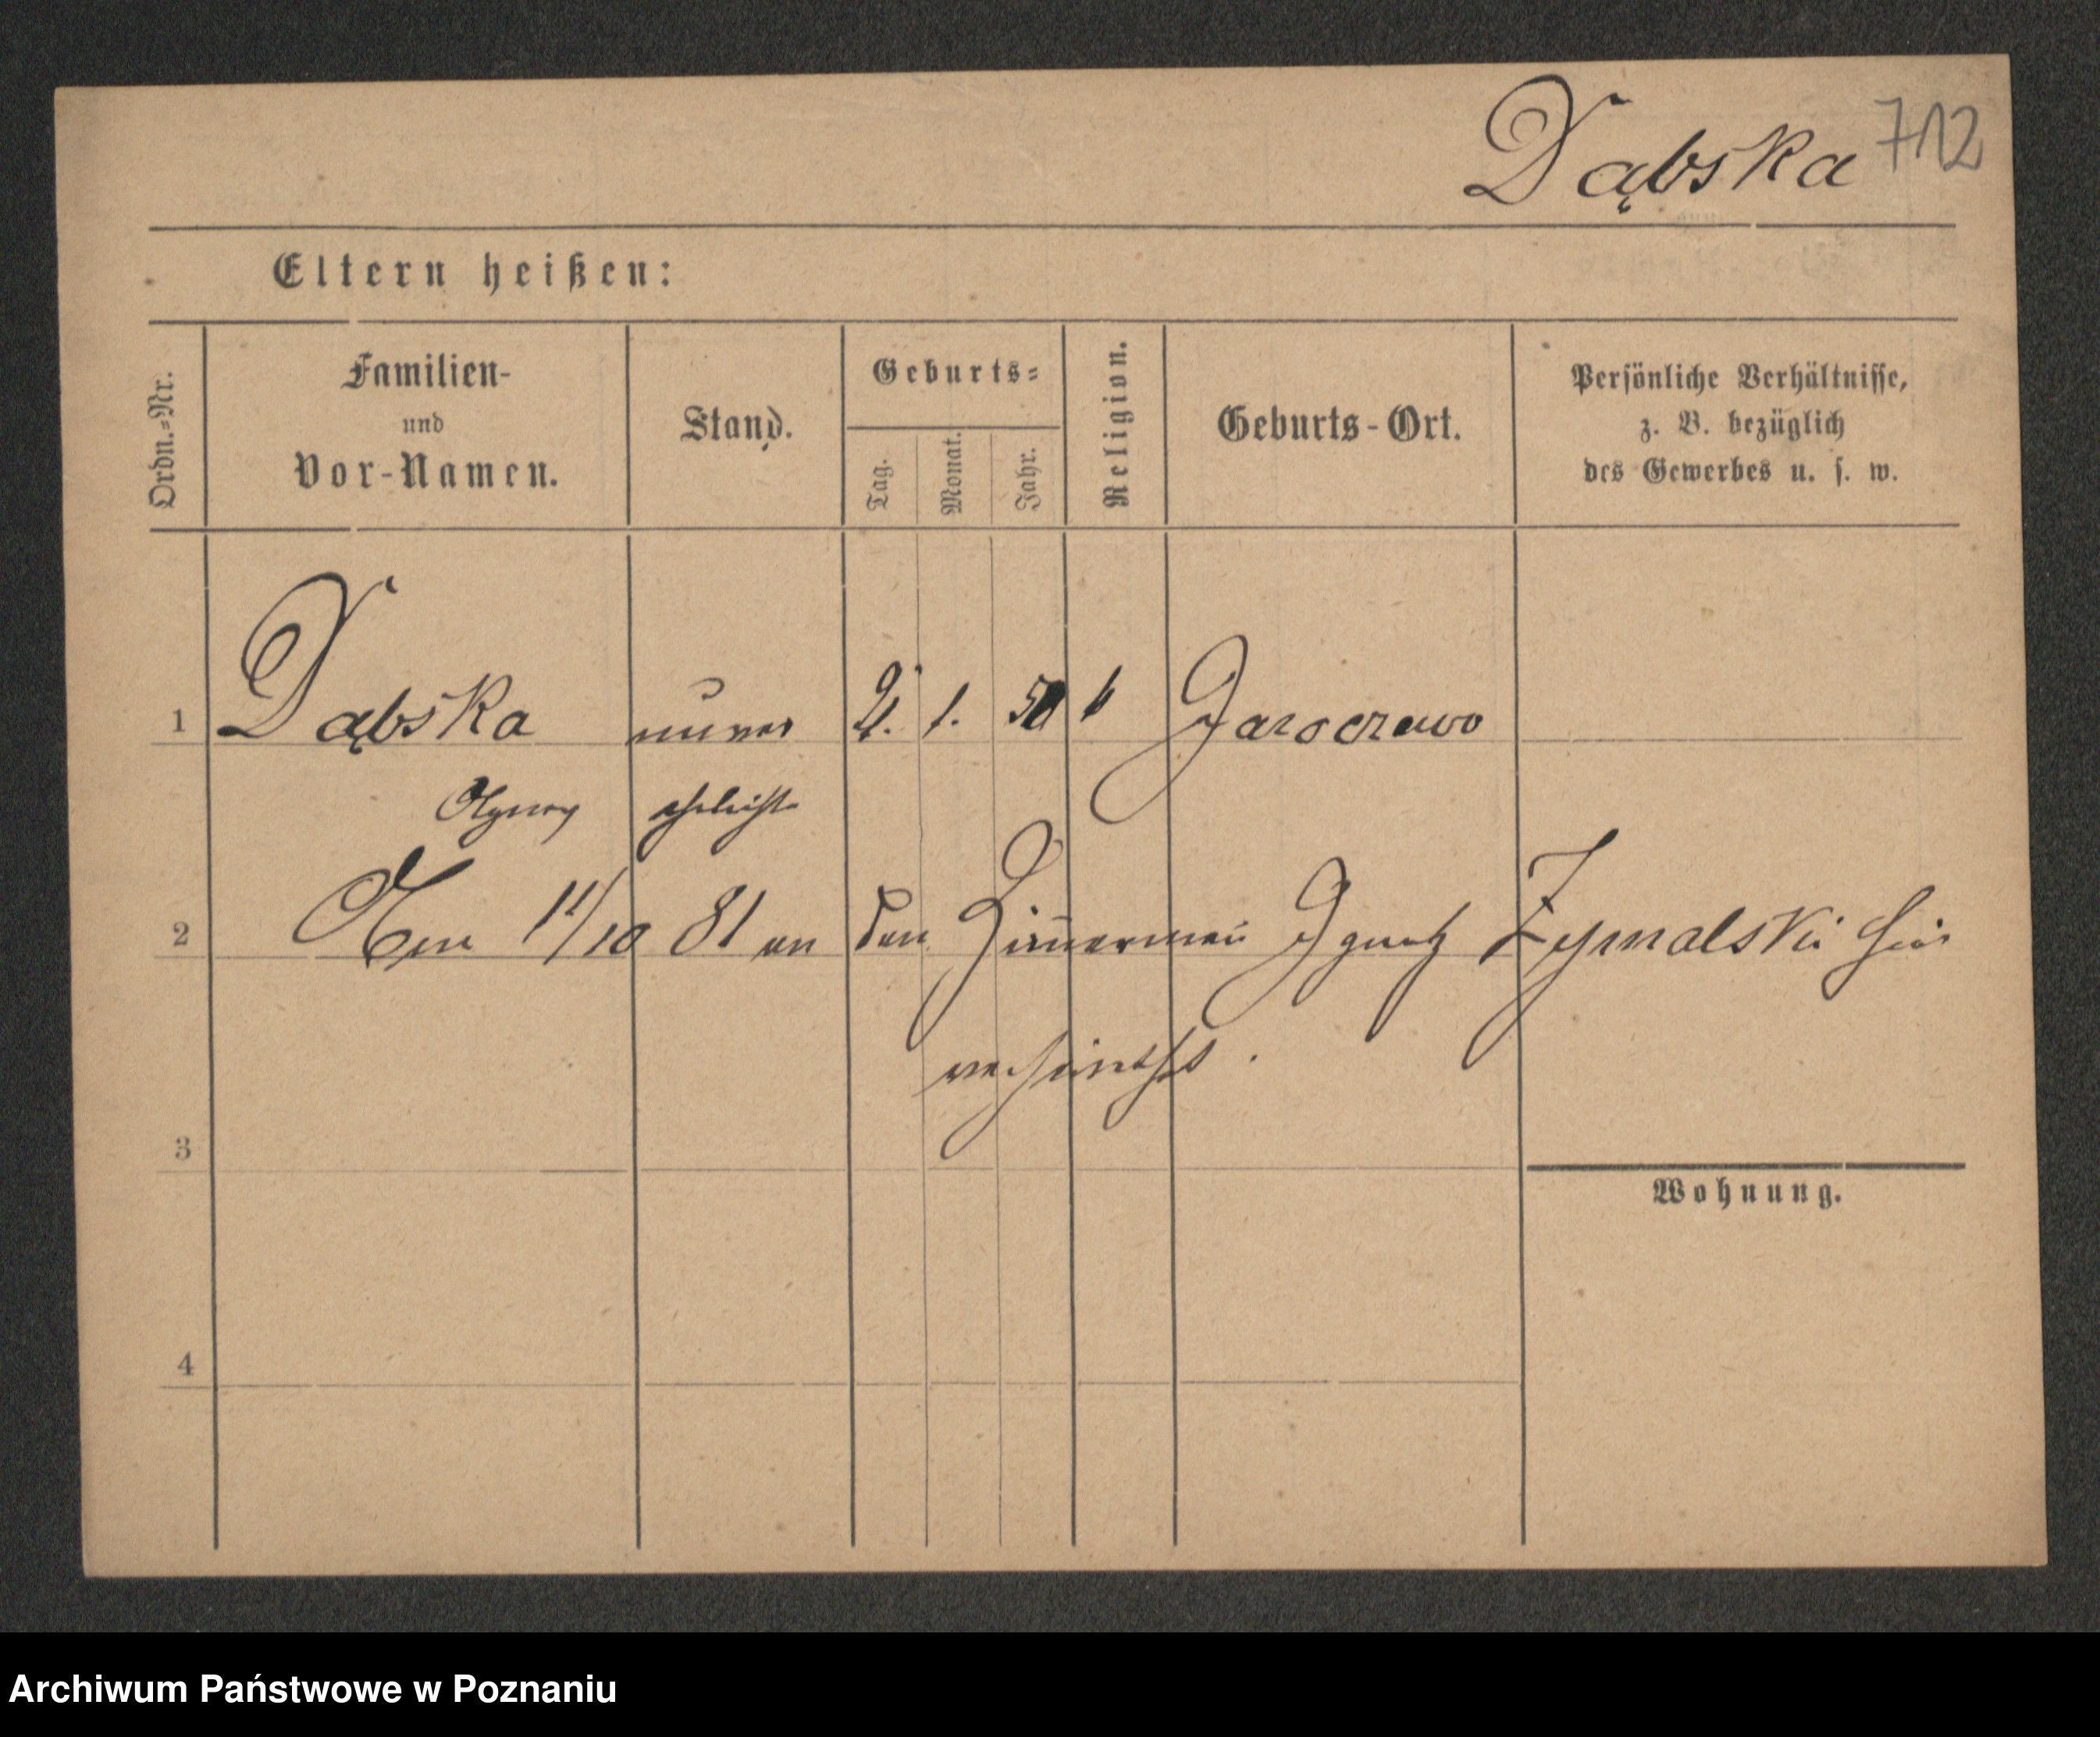 Dąbska 712
Eltern heißen:
Ordn.-Nr.
Familien-
und
Vor-Namen.
Stand.
Geburts-
Tag.
Monat.
Jahr.
Religion.
Geburts-Ort.
Persönliche Verhältnisse,
z. B. bezüglich
des Gewerbes u. s. w.
1 Dąbska unver 1. k Jaroczewo
Agnes ehelicht
2 Am 11/10 81 an den Zim̄erman̄ Ignatz Zymalski hier
verheirathet.
3
Wohnung.
4
Archiwum Państwowe w Poznaniu